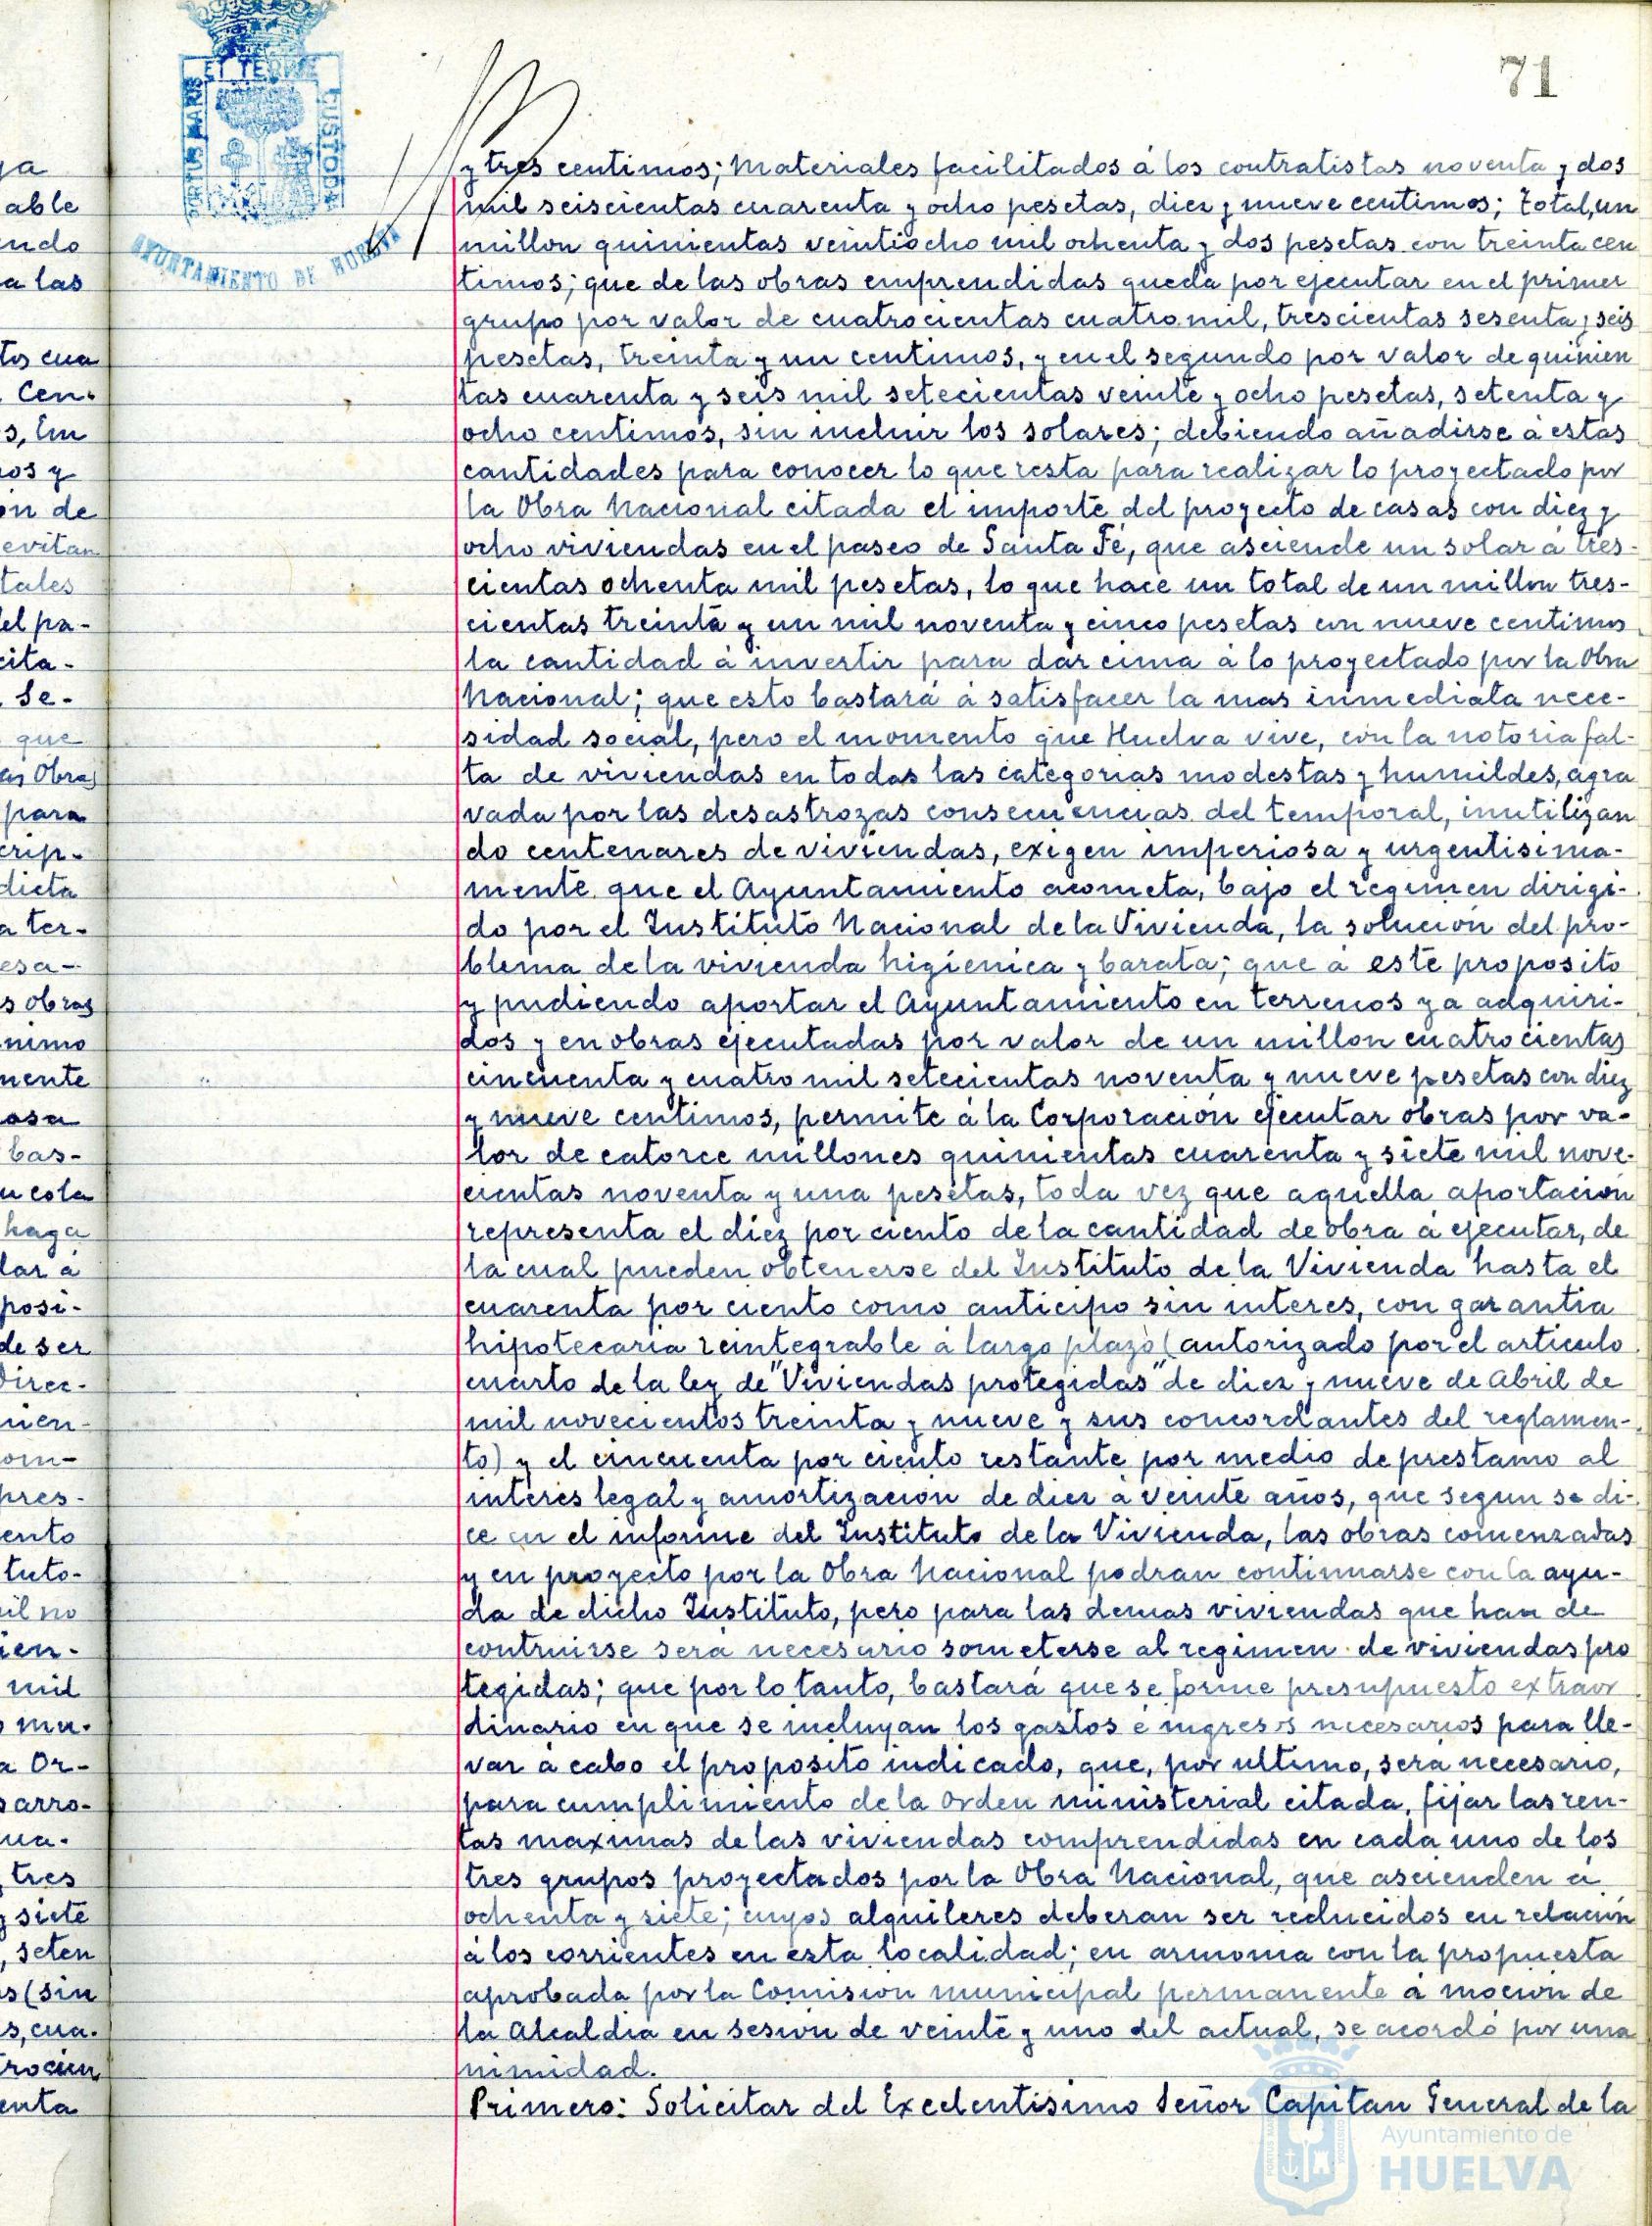 71
PORTUS MARIS ET TERRE CUSTODIA
AYUNTAMIENTO DE HUELVA
y tres centimos; Materiales facilitados á los contratistas noventa y dos
mil seiscientas cuarenta y ocho pesetas, diez y nueve centimos; total, un
millon quinientas veintiocho mil ochenta y dos pesetas con treinta cen
timos; que de las obras emprendidas queda por ejecutar en el primer
grupo por valor de cuatrocientas cuatro mil, trescientas sesenta y seis
pesetas, treinta y un centimos, y en el segundo por valor de quinien
tas cuarenta y seis mil setecientas veinte y ocho pesetas, setenta y
ocho centimos, sin incluir los solares; debiendo añadirse á estas
cantidades para conocer lo que resta para realizar lo proyectado por
la Obra Nacional citada el importe del proyecto de casas con diez y
ocho viviendas en el paseo de Santa Fé, que asciende un solar á tres-
cientas ochenta mil pesetas, lo que hace un total de un millon tres-
cientas treinta y un mil noventa y cinco pesetas con nueve centimos
la cantidad á invertir para dar cima á lo proyectado por la Obra
Nacional; que esto bastará á satisfacer la mas inmediata nece-
sidad social, pero el momento que Huelva vive, con la notoria fal-
ta de viviendas en todas las categorias modestas y humildes, agra
vada por las desastrozas consecuencias del temporal, inutilizan
do centenares de viviendas, exigen imperiosa y urgentisima-
mente que el Ayuntamiento acometa, bajo el regimen dirigi-
do por el Instituto Nacional de la Vivienda, la solución del pro-
blema de la vivienda higienica y barata; que á este proposito
y pudiendo aportar el Ayuntamiento en terrenos ya adquiri-
dos y en obras ejecutadas por valor de un millon cuatrocientas
cincuenta y cuatro mil setecientas noventa y nueve pesetas con diez
y nueve centimos, permite á la Corporación ejecutar obras por va-
lor de catorce millones quinientas cuarenta y siete mil nove-
cientas noventa y una pesetas, toda vez que aquella aportación
representa el diez por ciento de la cantidad de obra á ejecutar, de
la cual pueden obtenerse del Instituto de la Vivienda hasta el
cuarenta por ciento como anticipo sin interes, con garantia
hipotecaria reintegrable á largo plazo (autorizado por el articulo
cuarto de la ley de "Viviendas protegidas" de diez y nueve de Abril de
mil novecientos treinta y nueve y sus concordantes del reglamen-
to) y el cincuenta por ciento restante por medio de prestamo al
interés legal y amortización de diez á veinte años, que segun se di-
ce en el informe del Instituto de la Vivienda, las obras comenzadas
y en proyecto por la Obra Nacional podran continuarse con la ayu-
da de dicho Instituto, pero para las demas viviendas que han de
contruirse será necesario someterse al regimen de viviendas pro
tegidas; que por lo tanto, bastará que se forme presupuesto extraor
dinario en que se incluyan los gastos é ingresos necesarios para lle-
var á cabo el proposito indicado, que, por ultimo, será necesario,
para cumplimiento de la Orden ministerial citada, fijar las ren-
tas maximas de las viviendas comprendidas en cada uno de los
tres grupos proyectados por la Obra Nacional, que ascienden á
ochenta y siete; cuyos alquileres deberan ser reducidos en relación
á los corrientes en esta localidad; en armonia con la propuesta
aprobada por la Comision municipal permanente á moción de
la Alcaldia en sesion de veinte y uno del actual, se acordó por una
nimidad.
Primero: Solicitar del Excelentisimo Señor Capitan General de la
Ayuntamiento de
HUELVA